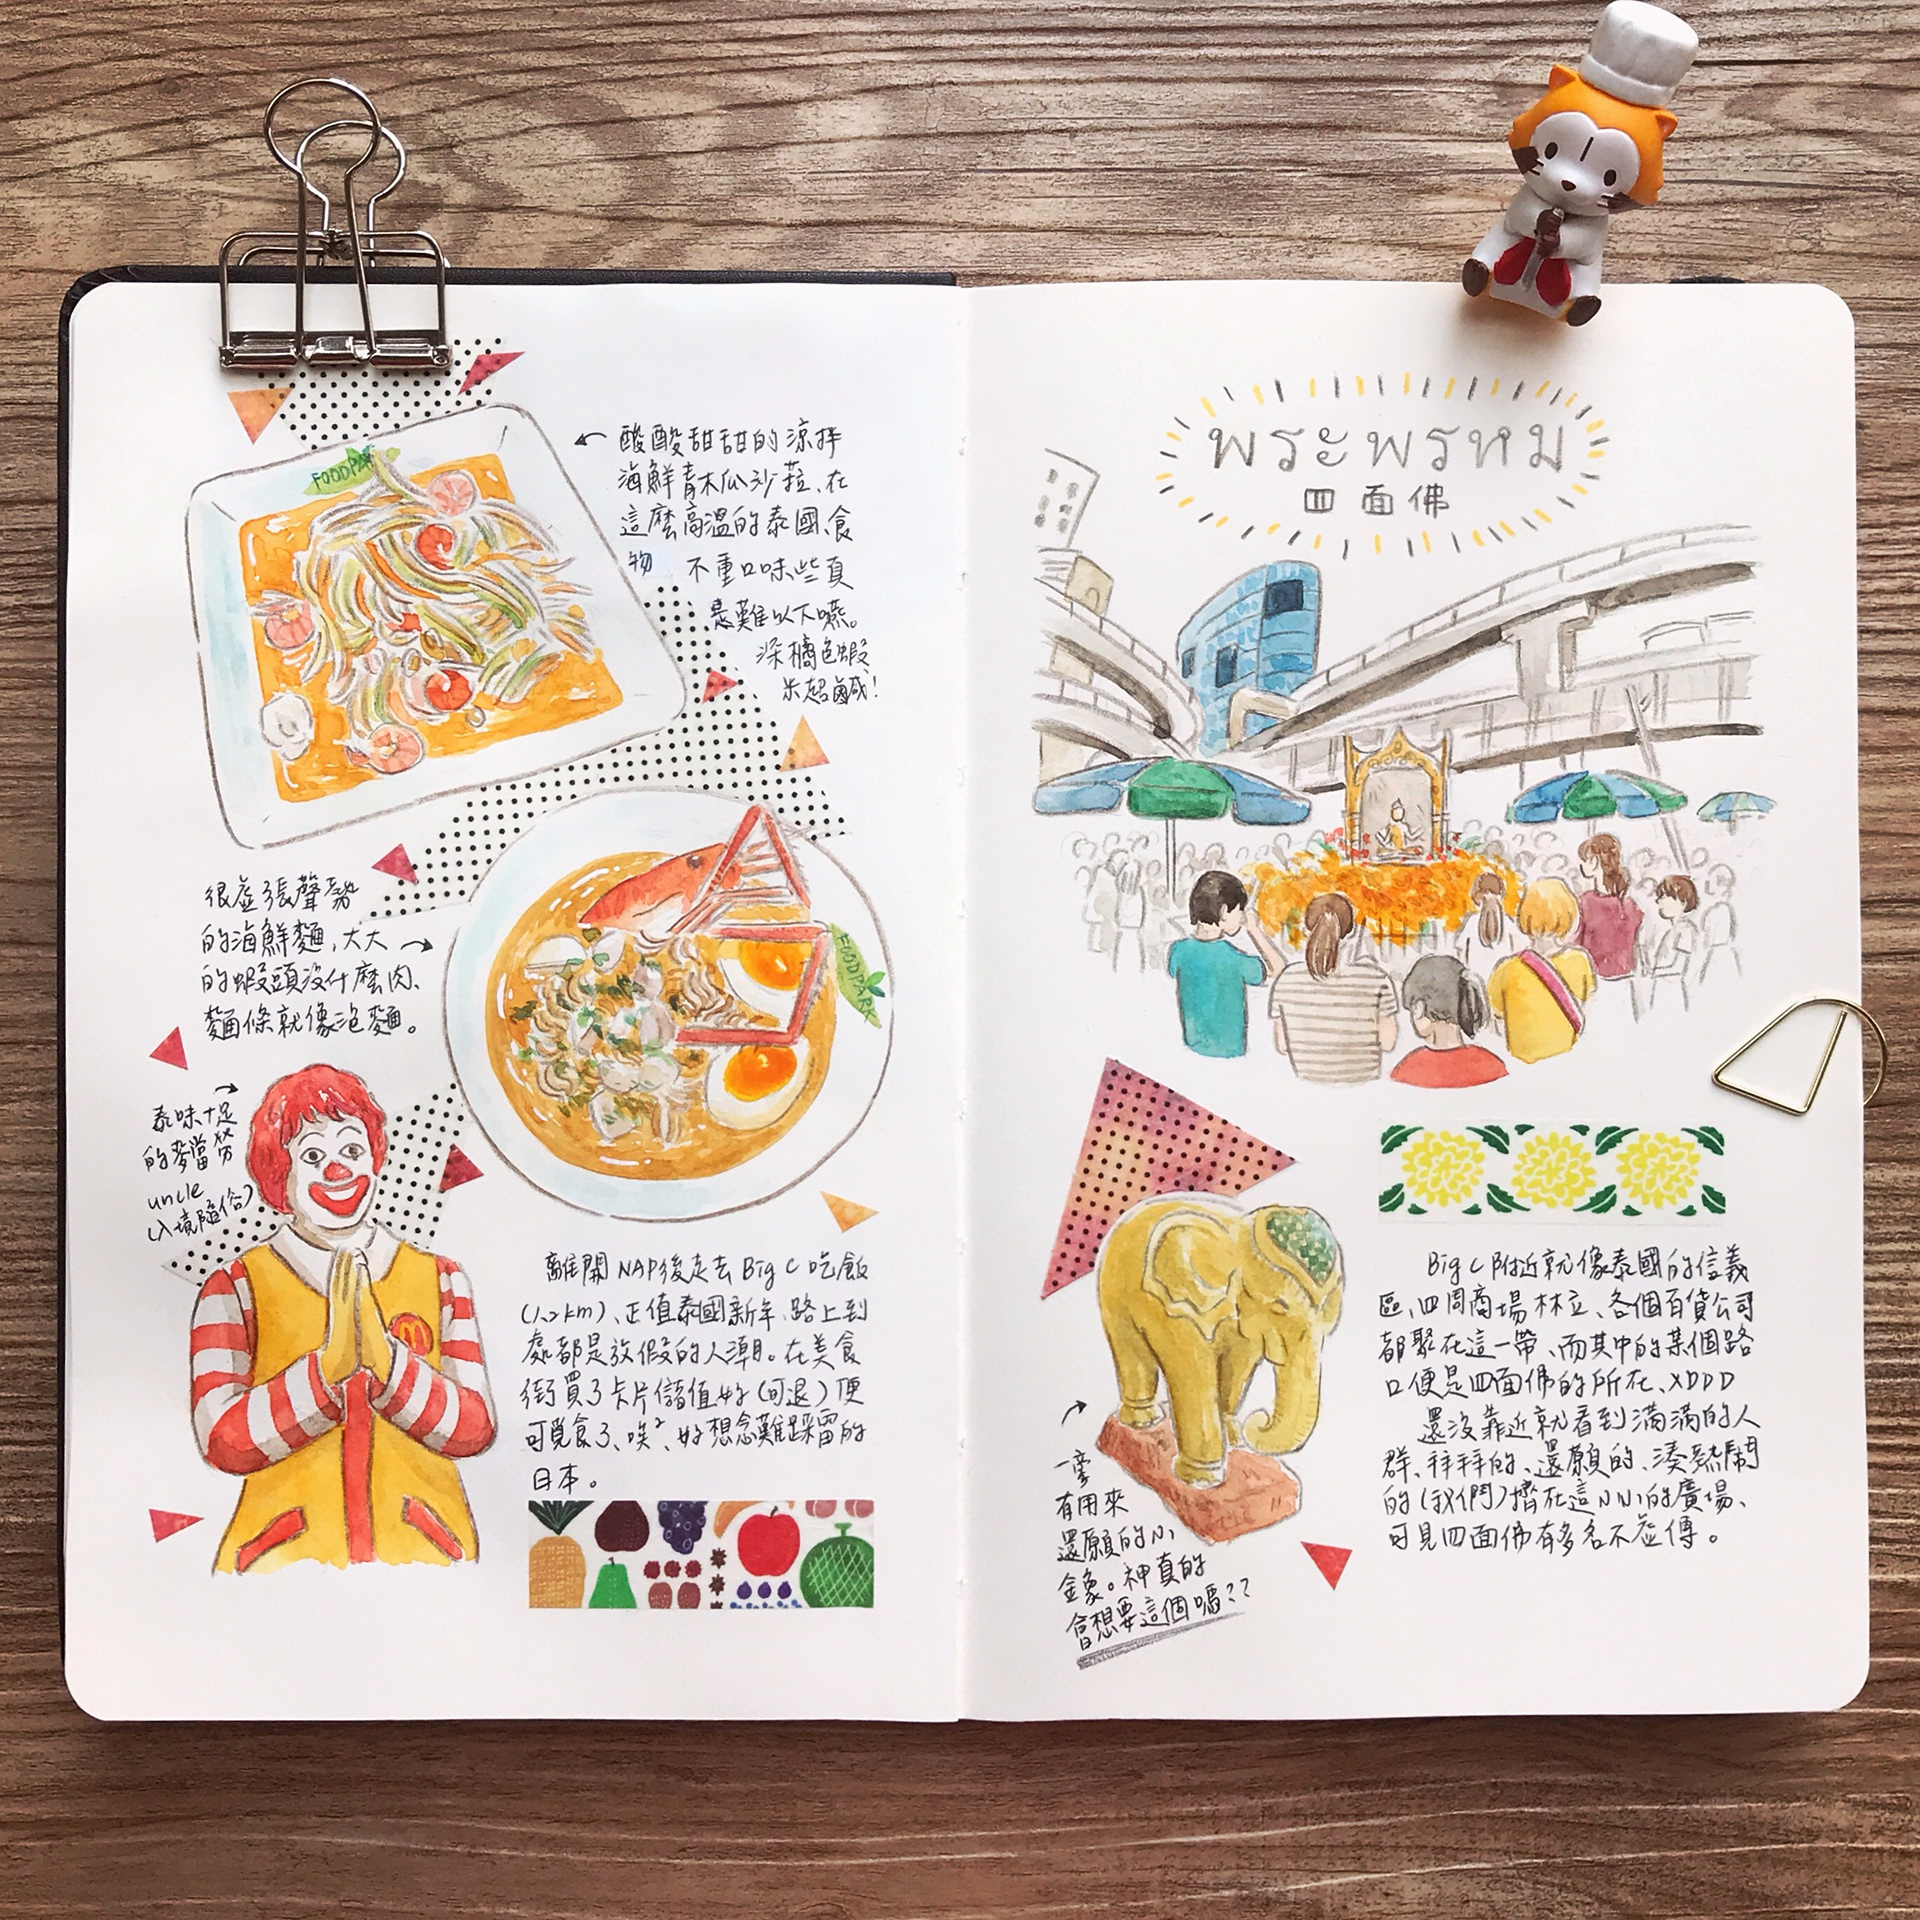 FOODPARK
酸酸甜甜的涼拌
海鮮青木瓜沙菈、在
這麼高溫的泰國、食
物 不重口味些真
是難以下嚥。
深橘色蝦
米超鹹!
很虛張聲勢
的海鮮麵,大大
的蝦頭沒什麼肉、
麵條就像泡麵。
FOODPARK
泰味十足
的麥當勞
uncle
(入境隨俗)
離開NAP後走去Big C吃飯
(1.2km)、正值泰國新年、路上到
處都是放假的人潮。在美食
街買了卡片儲值好(可退)便
可覓食了、唉²、好想念難踩雷的
日本。
พระพรหม
四面佛
一旁
有用來
還願的小
金象。神真的
會想要這個嗎??
Big C附近就像泰國的信義
區、四周商場林立、各個百貨公司
都聚在這一帶、而其中的某個路
口便是四面佛的所在、XDDD
還沒靠近就看到滿滿的人
群、拜拜的、還願的、湊熱鬧
的(我們)擠在這小小的廣場、
可見四面佛有多名不虛傳。